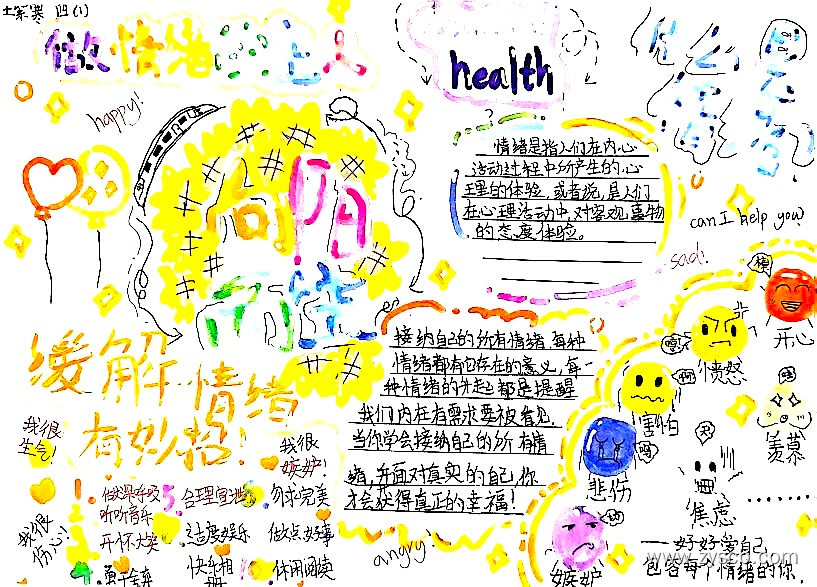 四(1)
做情绪的主人
health
happy!
向阳
而生
情绪是指人们在内心
活动过程中所产生的心
理的体验,或者说,是人们
在心理活动中,对客观事物
的态度体验。
can I help you?
sad!
接纳自己的所有情绪,每种
情绪都有它存在的意义,每一
种情绪的升起都是提醒
我们内在有需求要被看见.
当你学会接纳自己的所有情
绪,并面对真实的自己,你
才会获得真正的幸福!
开心
愤怒
害怕
羡慕
悲伤
焦虑
嫉妒
缓解情绪
有妙招!
我很
生气!
我很
嫉妒!
我很
伤心!
1.
做深呼吸
听听音乐
开怀大笑
4.
5.
合理宣泄
适度娱乐
快乐相
勿求完美
做点好事
休闲阅读
angry!
——好好爱自己
包容每个情绪的你